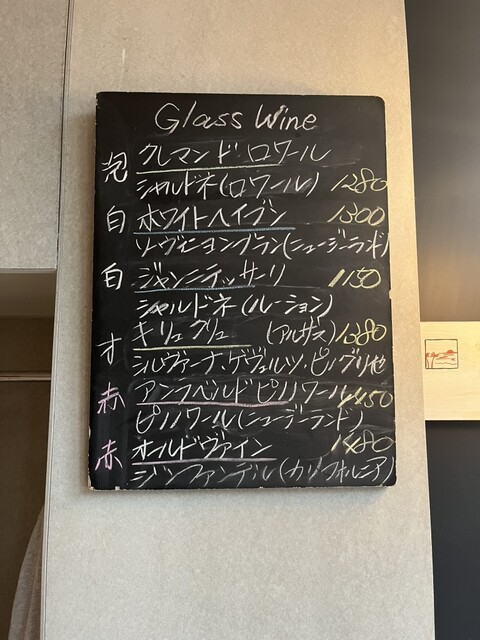 Glass Wine
泡 クレマンド・ロワール
シャルドネ(ロワール) 1280
白 ホワイトヘイブン 1300
ソーヴィニヨンブラン(ニュージーランド)
白 ジャンニテッサーリ 1150
シャルドネ(ルーション)
オ キリュクリュー (アルザス) 1380
シルヴァーナ・ゲヴェルツ・ピノグリ他
赤 アンフベルドピノノワール 1450
ピノノワール(ニュージーランド)
赤 オールドヴァイン 1480
ジンファンデル(カリフォルニア)